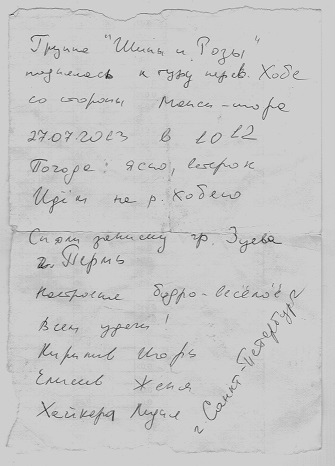 Группа "Шипы и Розы"
поднялась к туру перев. Хобе
со стороны Манси-шора
27.07.2023 в 10 12
Погода: ясно, ветерок
Идём на р. Хобею
Сняли записку гр. Зуева
г. Пермь
настроение бодро-весёлое
Всем удачи!
Кирилив Игорь
Елисив Женя
Хайкера Лидия
г Санкт-Петербург